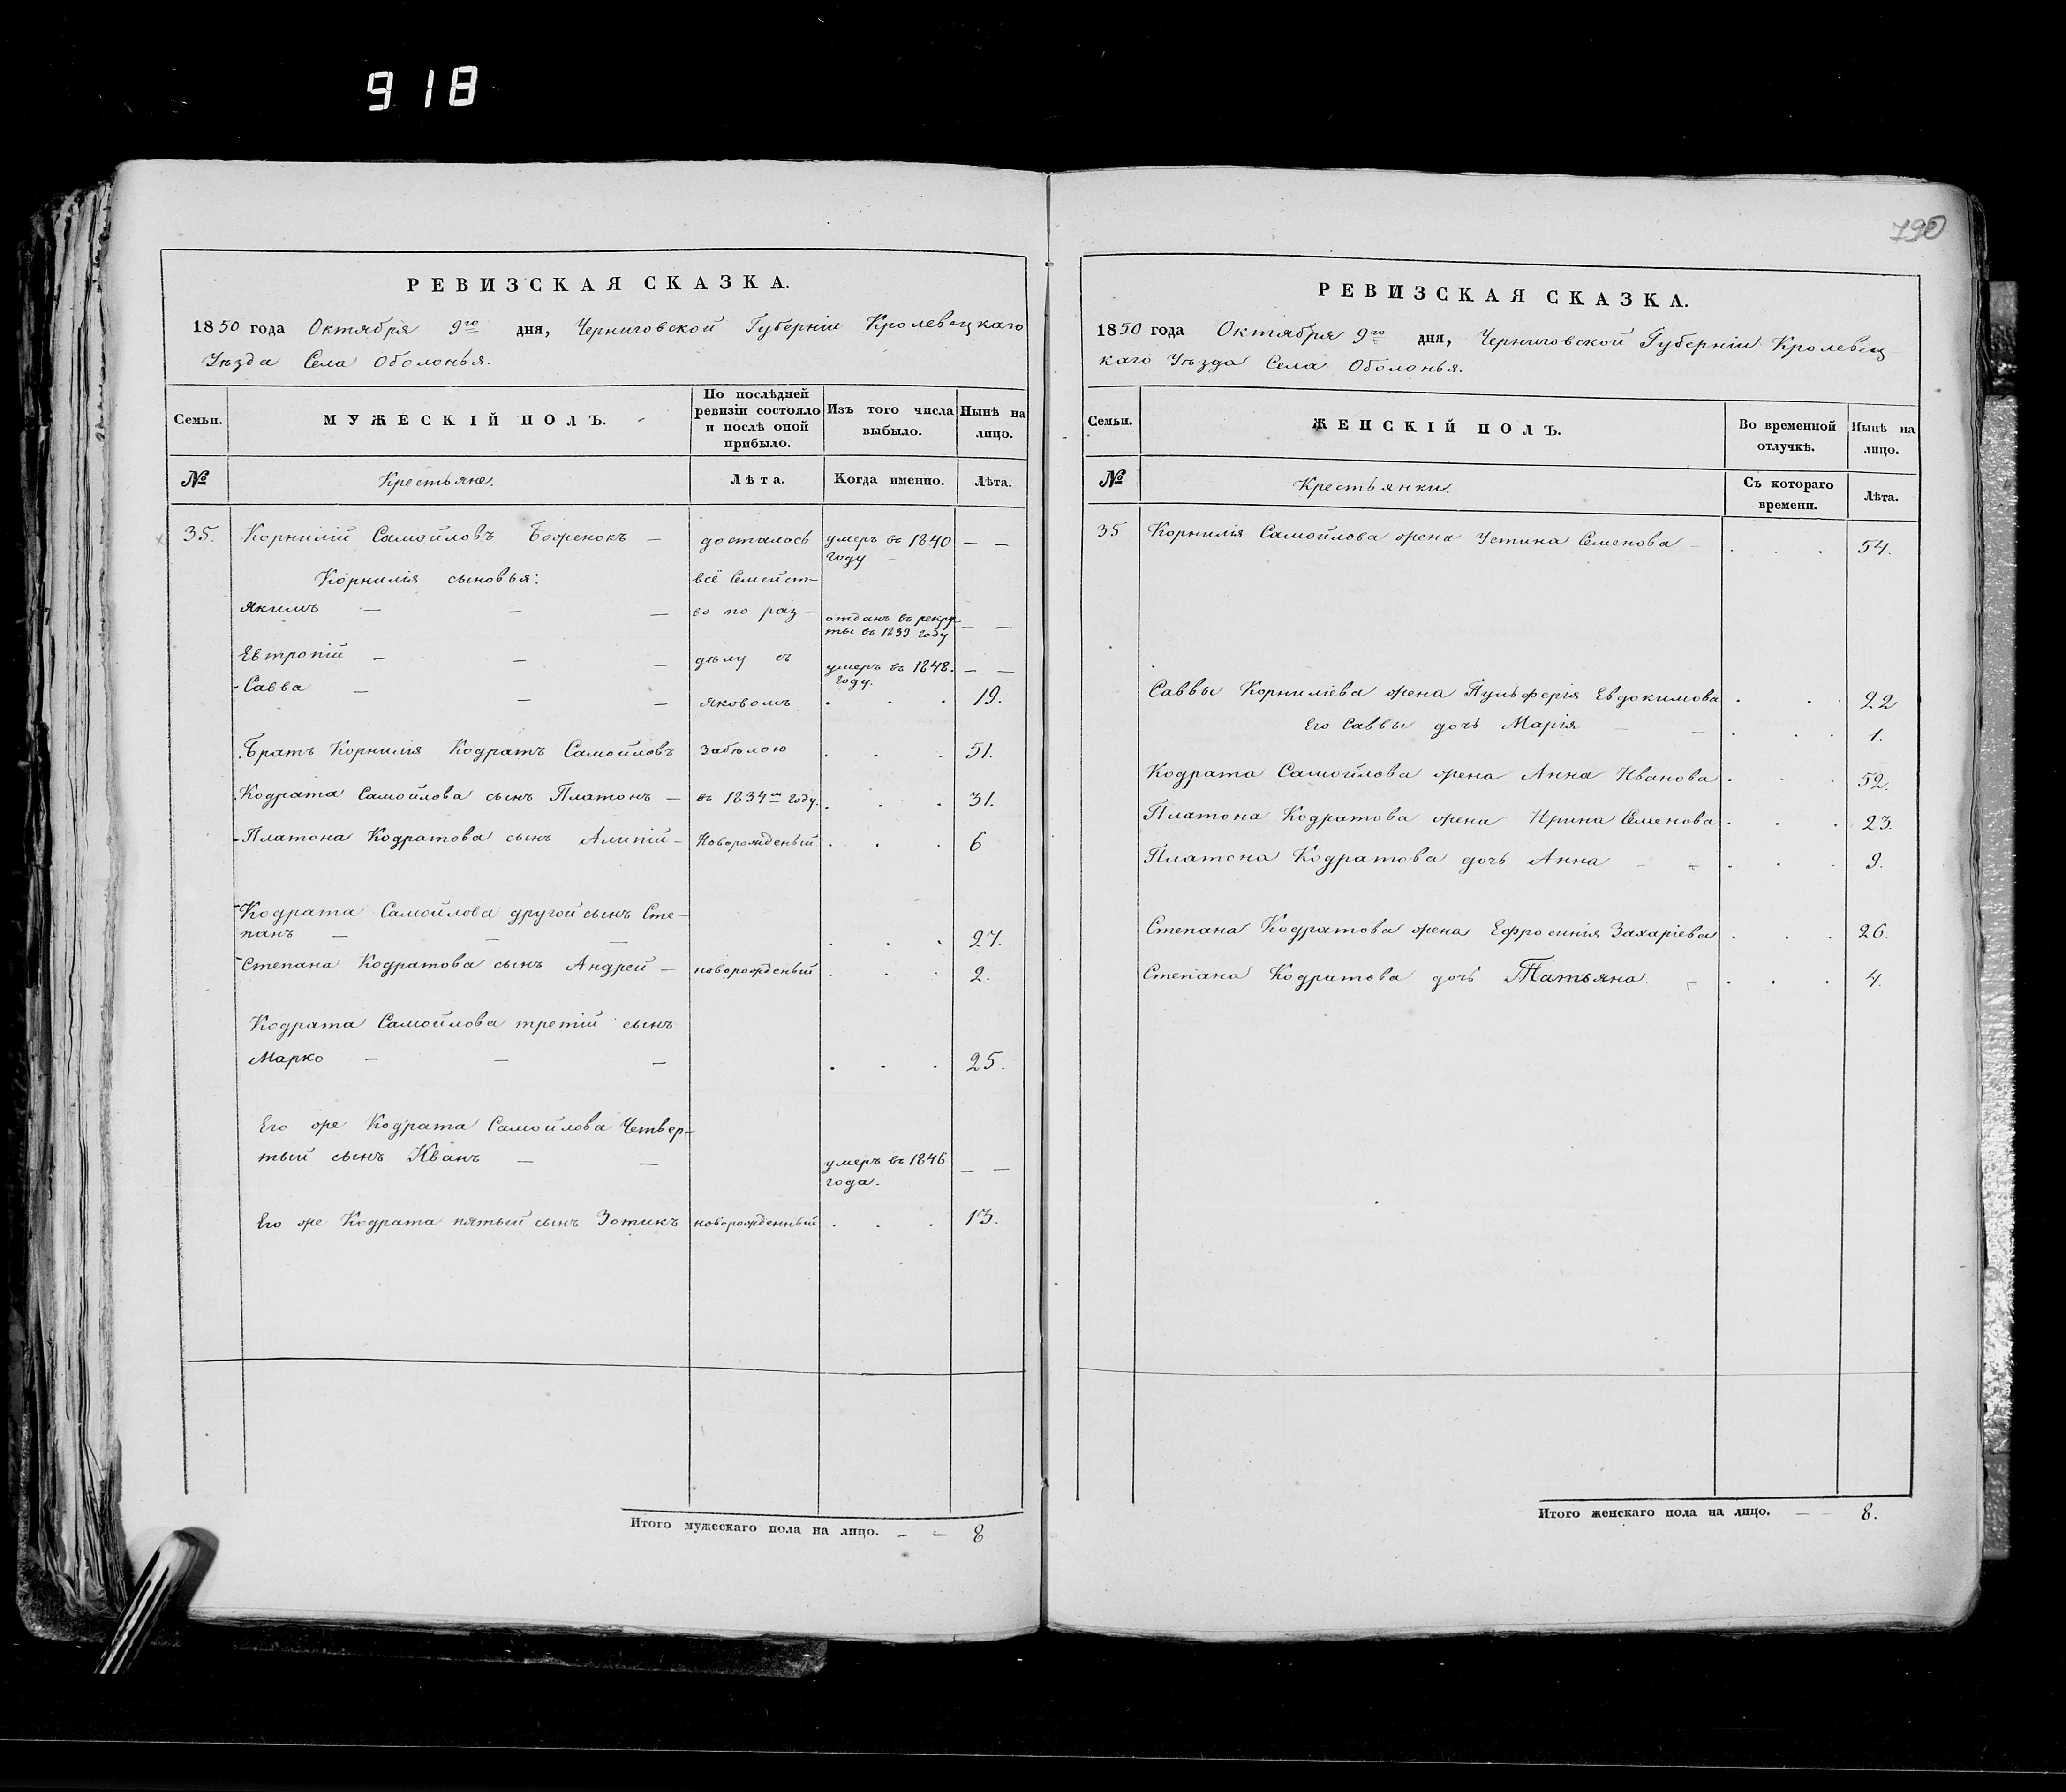 918
790
РЕВИЗСКАЯ СКАЗКА.
1850 года Октября 9го дня, Черниговской Губерніи Кролевецкаго
Уѣзда Села Оболонья.
Семьи.
МУЖЕСКІЙ ПОЛЪ.
По послѣдней ревизіи состояло и послѣ оной прибыло.
Изъ того числа выбыло.
Нынѣ на лицо.
№
Крестьяне.
Лѣта.
Когда именно.
Лѣта.
35. Корнилій Самойловъ Боженокъ — досталось умеръ въ 1840 году — —
Корнилія сыновья: всё Семейст-
Якимъ — — — во по раз- отданъ въ рекру-ты въ 1839 году — —
Евтропій — — — дѣлу съ умеръ въ 1848. году. — —
Савва — — — Яковомъ . . . 19.
Братъ Корнилія Кодратъ Самойловъ Забѣлою . . . 51.
Кодрата Самойлова сынъ Платонъ — въ 1834м году. . . . 31.
Платона Кодратова сынъ Алипій — Новорожденый . . . 6
Кодрата Самойлова другой сынъ Сте-
панъ — — — . . . 27.
Степана Кодратова сынъ Андрей — новорожденый . . . 2.
Кодрата Самойлова третій сынъ
Марко — — — . . . 25.
Его же Кодрата Самойлова Четвер-
тый сынъ Иванъ — — умеръ въ 1846 года. — —
Его же Кодрата пятый сынъ Зотикъ новорожденный . . . 13.
Итого мужескаго пола на лицо. — — 8
РЕВИЗСКАЯ СКАЗКА.
1850 года Октября 9го дня, Черниговской Губерніи Кролевец
каго Уѣзда Села Оболонья.
Семьи.
ЖЕНСКІЙ ПОЛЪ.
Во временной отлучкѣ.
Нынѣ на лицо.
№
Крестьянки.
Съ котораго времени.
Лѣта.
35 Корнилія Самойлова жена Устина Семенова — . . . 54.
Саввы Корниліева жена Пульферія Евдокимова . . . 22
Его Саввы дочь Марія — — . . . 1.
Кодрата Самойлова жена Анна Иванова . . . 52.
Платона Кодратова жена Ирина Семенова . . . 23.
Платона Кодратова дочь Анна — — . . . 9.
Степана Кодратова жена Ефросинія Захаріева . . . 26.
Степана Кодратова дочь Татьяна. — . . . 4.
Итого женскаго пола на лицо. — — 8.